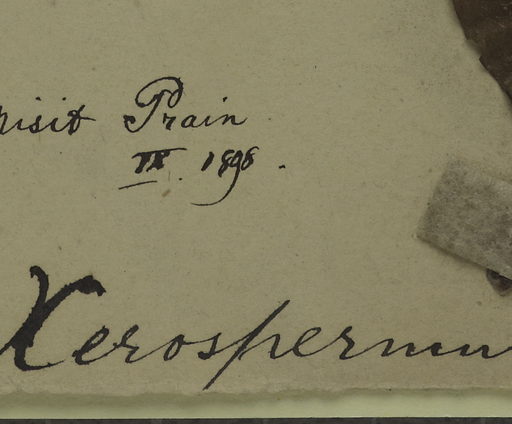 misit Prain
IX. 1898.
Xerospermu